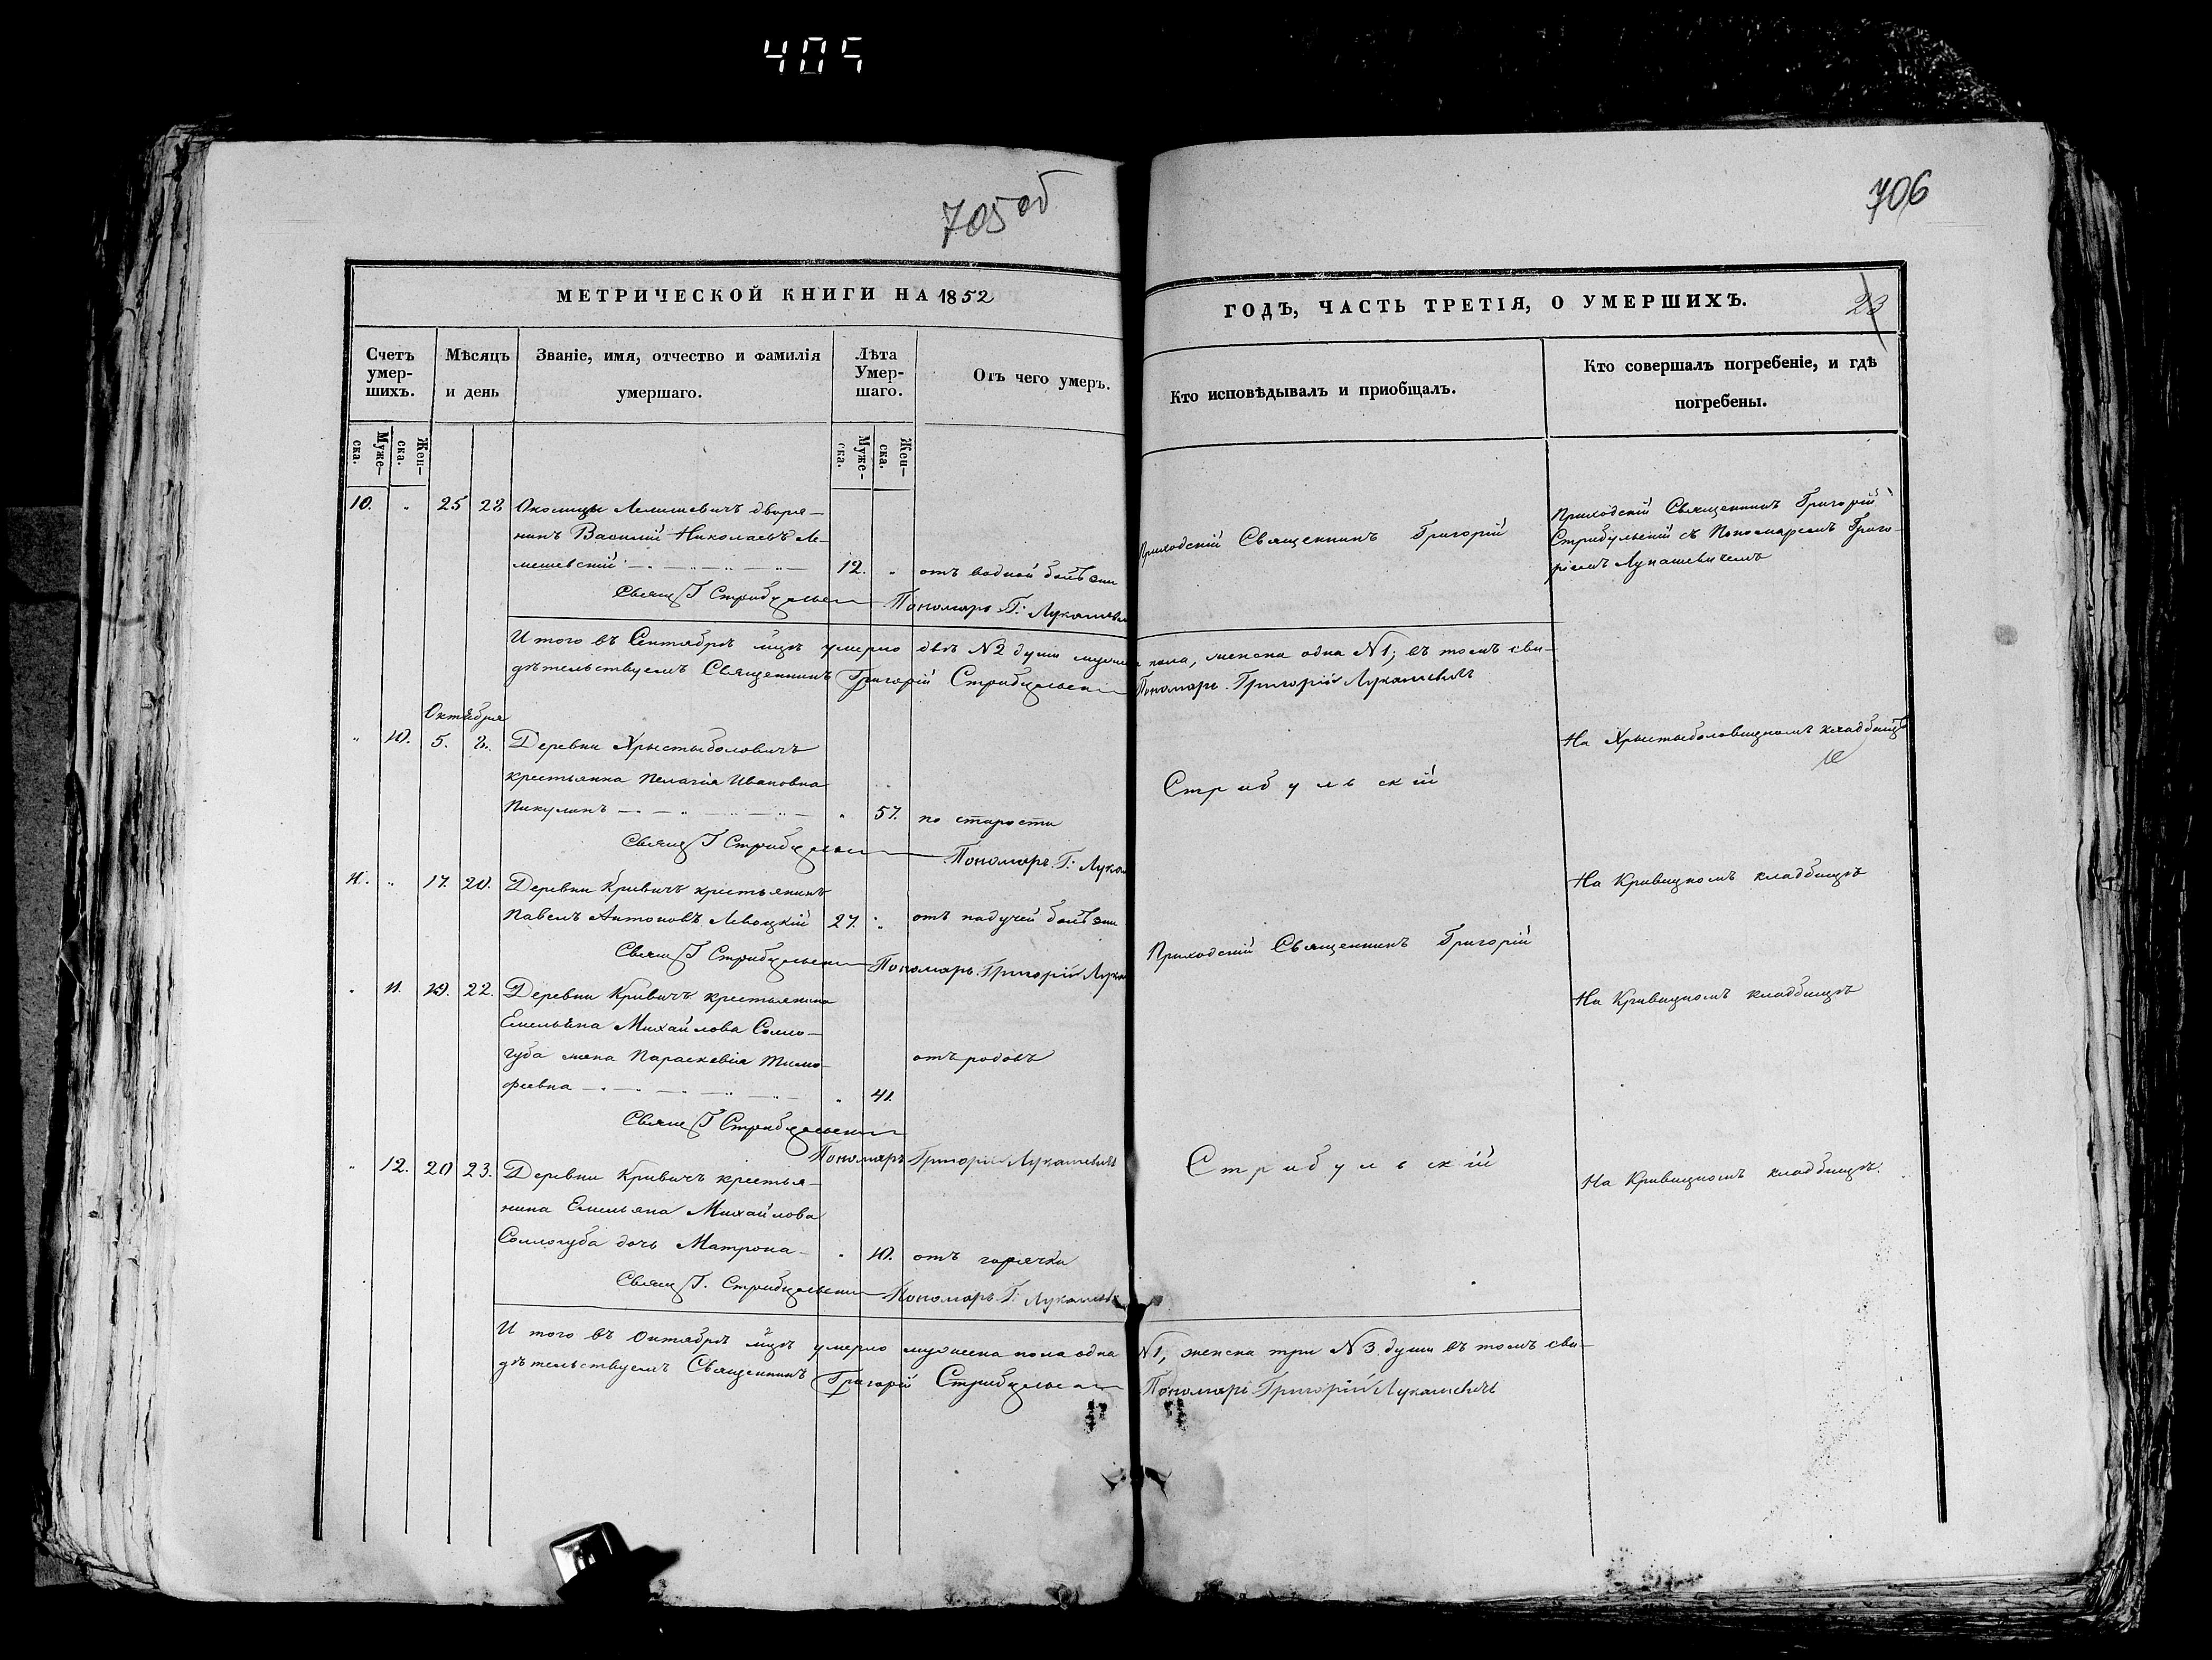 405
705 об
706
МЕТРИЧЕСКОЙ КНИГИ НА 1852
ГОДЪ, ЧАСТЬ ТРЕТІЯ, О УМЕРШИХЪ.
23
Счетъ умер-шихъ.
Мѣсяцъ и день
Званіе, имя, отчество и фамилія умершаго.
Лѣта Умер-шаго.
Отъ чего умеръ.
Кто исповѣдывалъ и пріобщалъ.
Кто совершалъ погребеніе, и гдѣ погребены.
Муже-ска.
Жен-ска.
Муже-ска.
Жен-ска.
10. " 25 28 Околицы Лемишевичъ дворя-
нинъ Василій Николаевъ Ле-
мешевскій 12. " отъ водной болѣзни
Приходскій Священникъ Григорій
Приходскій Священникъ Григорій
Стрибульскій съ Пономаремъ Григо-
ріемъ Лукашевичемъ
Свящ Г Стрибульскій Пономаръ Г: Лукашеви
И того въ Сентябрѣ мцѣ умерло двѣ N2 души мужеска пола, женска одна N1; въ томъ сви-
дѣтельствуемъ Священникъ Григорій Стрибульскій Пономарь Григорій Лукашевичъ
Октября
" 10. 5. 8. Деревни Хрыстыболовичъ
крестьянка Пелагія Ивановна
Пикулинъ " 57. по старости
Стрибульскій
На Хрыстыболовицкомъ кладбищѣ
Свящ Г Стрибульскій Пономаръ. Г: Лука
11. " 17. 20. Деревни Кривичъ крестьянинъ
Павелъ Антоновъ Левоцкій 27. " отъ падучей болѣзни
На Кривицкомъ кладбищѣ
Свящ Г Стрибульскій Пономаръ. Григорій Лука
Приходскій Священникъ Григорій
" 11. 19. 22. Деревни Кривичъ крестьянина
Емельяна Михайлова Солло-
губа жена Параскевія Тимо-
феевна " 41.
отъ родовъ
На Кривицкомъ кладбищѣ
Свящ Г Стрибульскій
Пономаръ Григорій Лукашевичъ
" 12. 20 23. Деревни Кривичъ крестья-
нина Емельяна Михайлова
Соллогуба дочь Матрона " 10. отъ горячки
Стрибульскій
На Кривицкомъ кладбищѣ.
Свящ Г. Стрибульскій Пономаръ. Г: Лукашеви
И того въ Октябрѣ мцѣ умерло мужеска пола одна N1, женска три N3. души въ томъ сви-
дѣтельствуемъ Священникъ Григорій Стрибульскій Пономарь Григорій Лукашевичъ